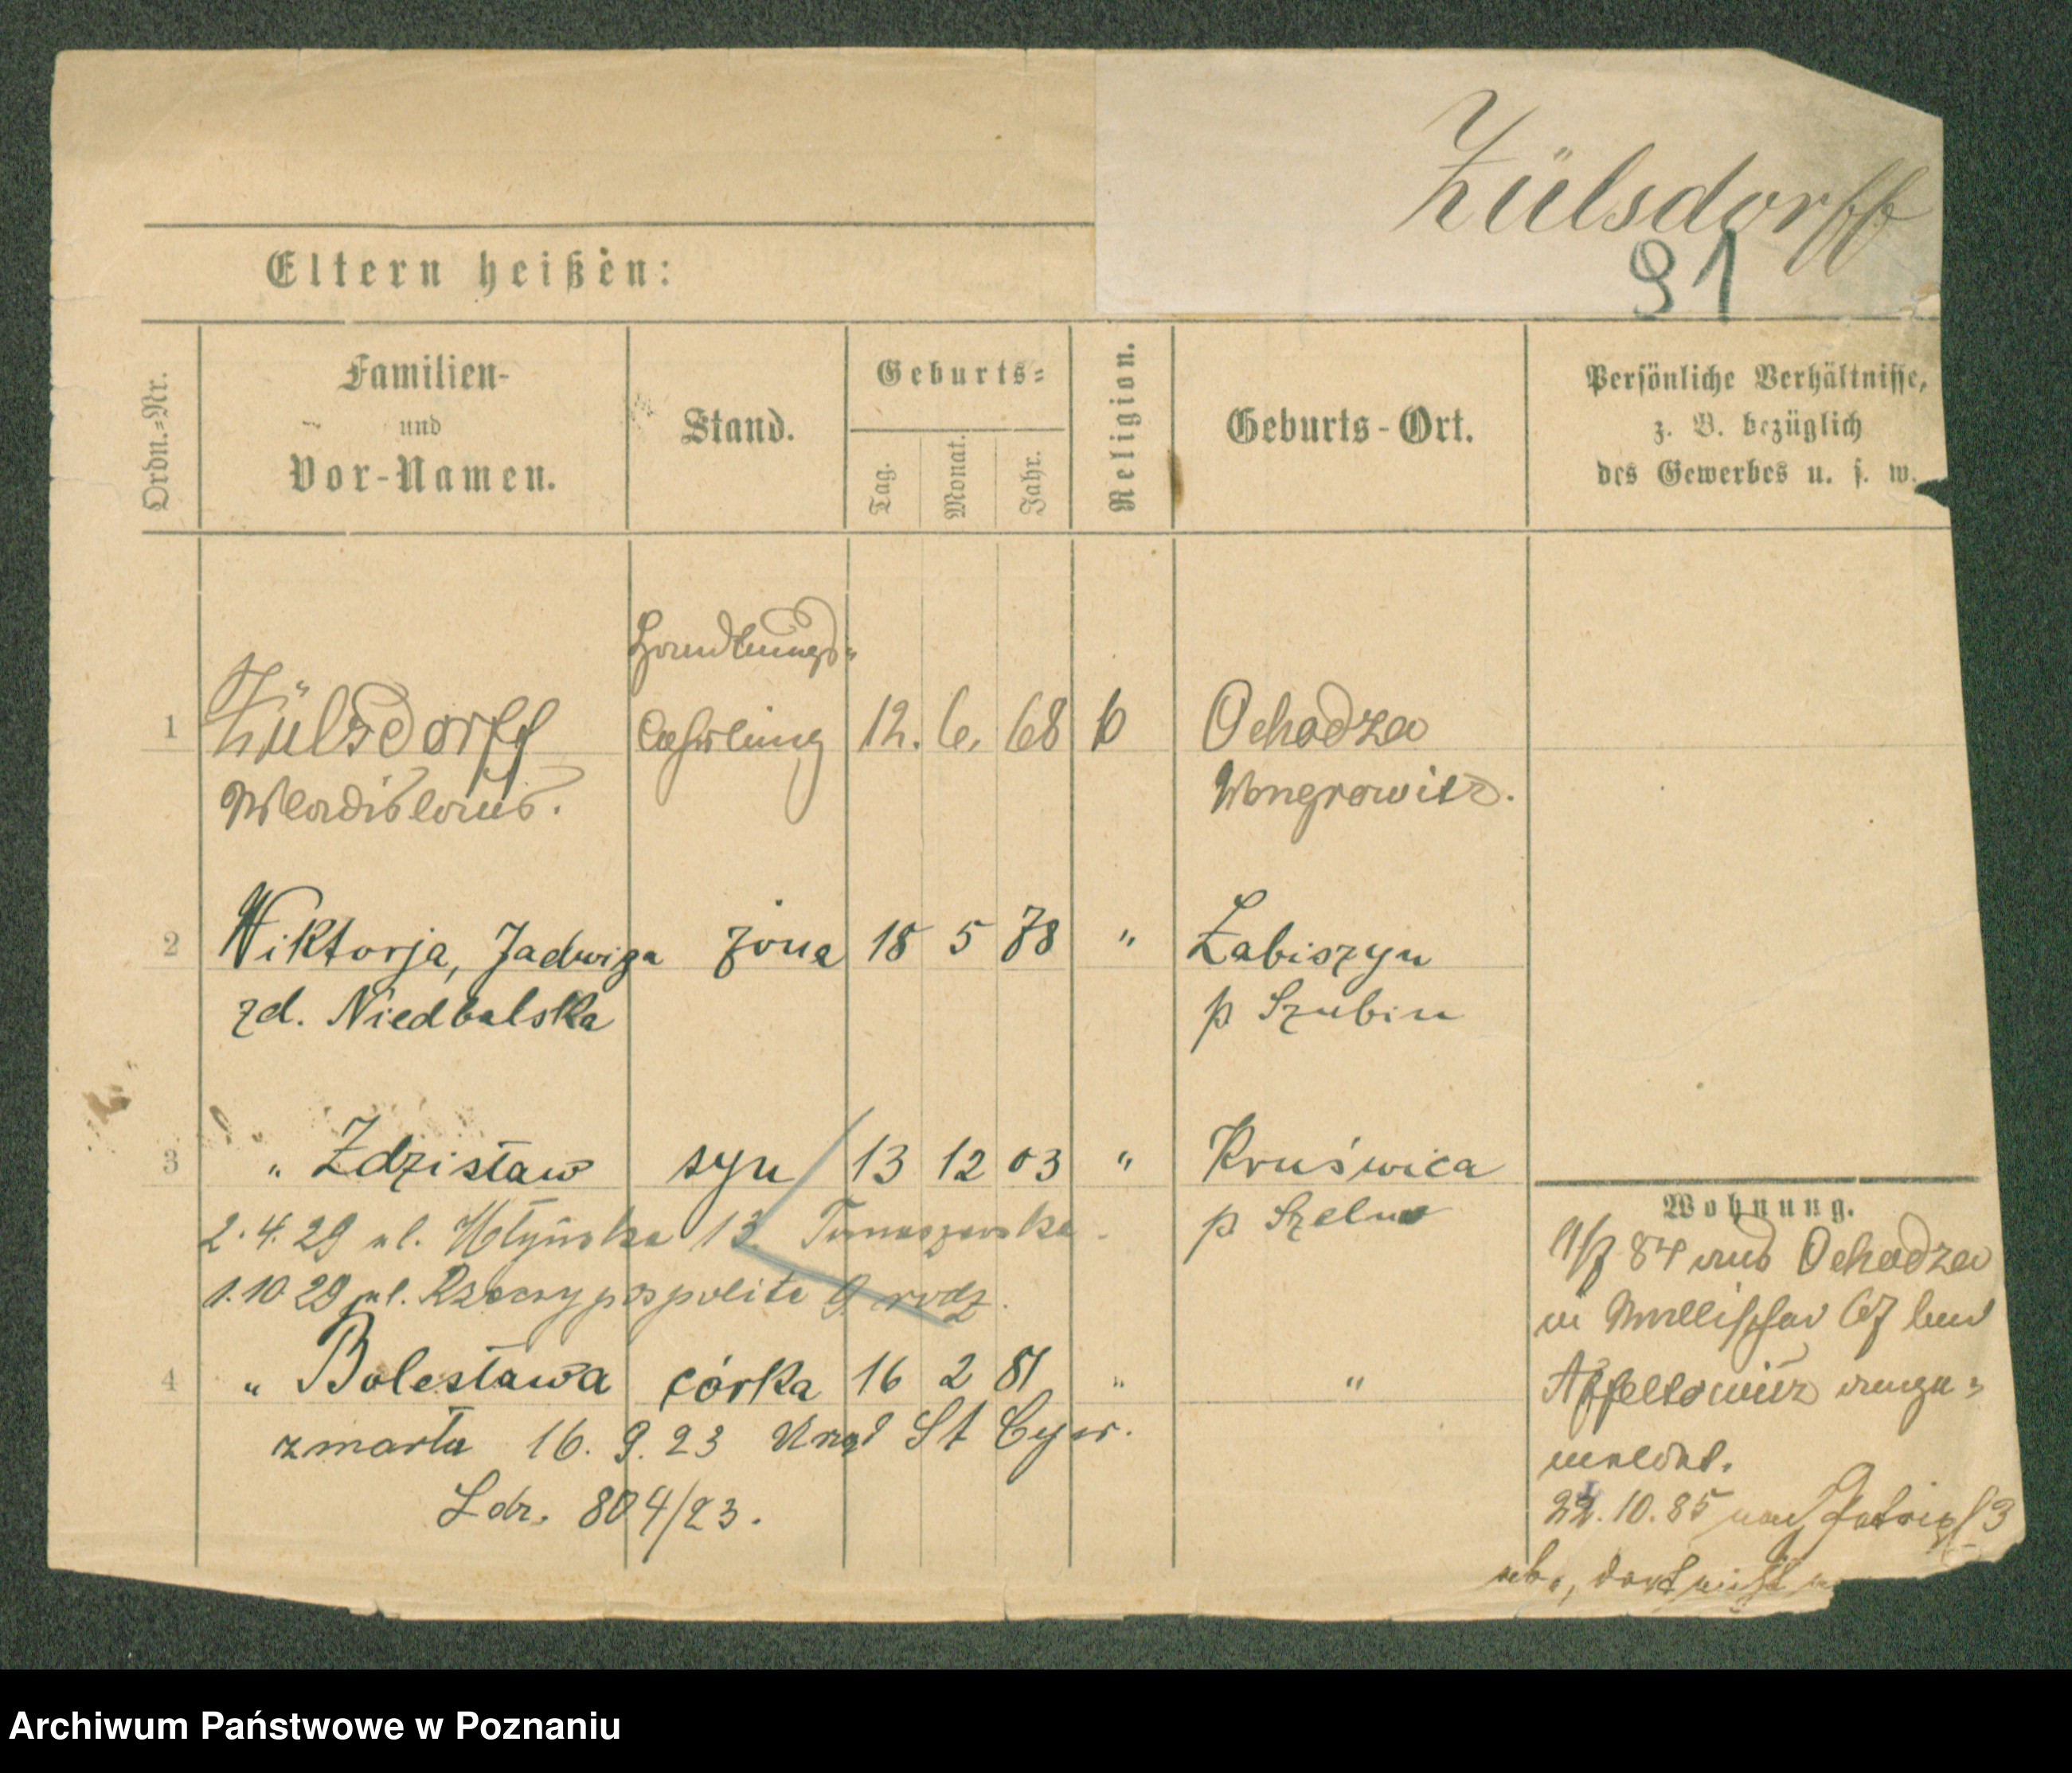 Zülsdorff
91
Eltern heißen:
Ordn.=Nr.
Familien-
und
Vor-Namen.
Stand.
Geburts=
Tag.
Monat.
Jahr.
Religion.
Geburts-Ort.
Persönliche Verhältnisse,
z. B. bezüglich
des Gewerbes u. s. w.
Handlungs-
1 Zülsdorff Lehrling 12. 6. 68 Ochodza
Wladislaus. Wongrowitz.
2 Wiktorja, Jadwiga żona 18 5 78 " Łabiszyn
zd. Niedbalska p Szubin
3 " Zdzisław syn 13 12 03 " Kruświca
p
2. 4. 29 ul. 13.
1. 10 29 ul. Rzeczypospolite 9
4 " Bolesława córka 16 2 " "
zmarła 16. 9. 23 Urząd St Cyw.
Ldr. 804/23.
Wohnung.
84 aus Ochodza
in Wallischei 67 bei
ange=
meldet.
22. 10. 85 nach 3
ab., dort nicht
Archiwum Państwowe w Poznaniu